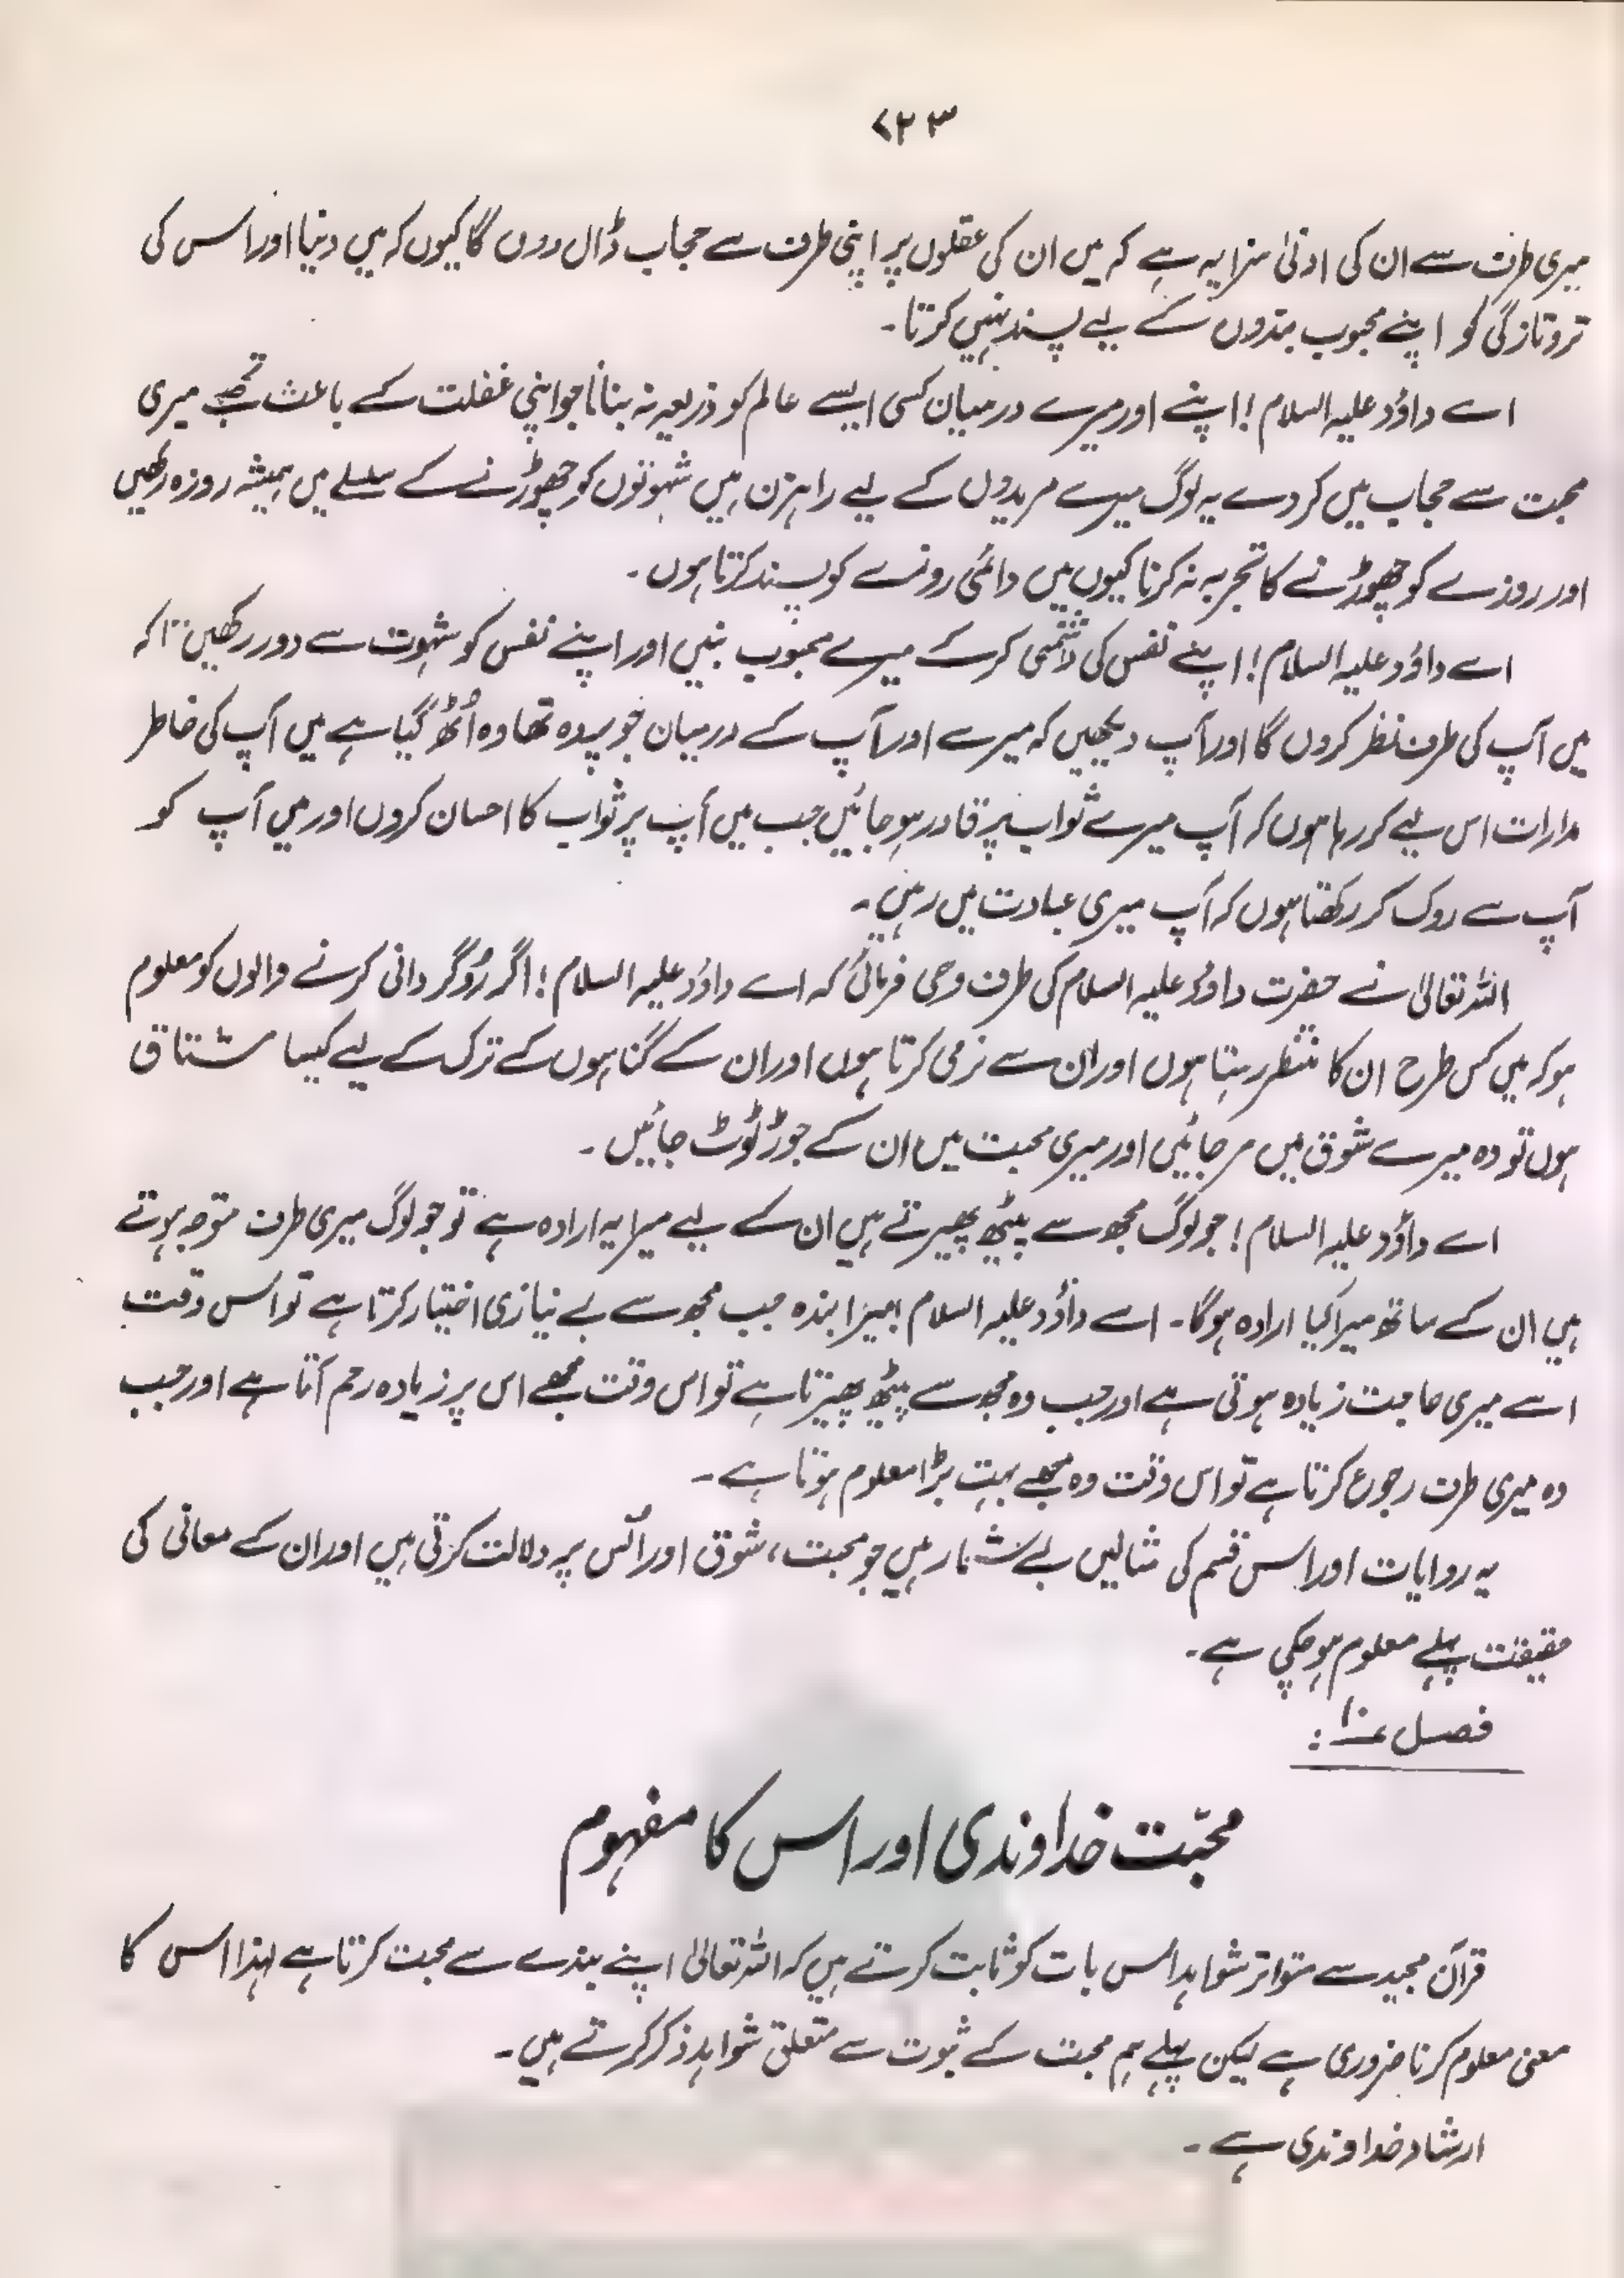 ۷۲۳
میری طرف سے ان کی ادنیٰ سزا یہ ہے کہ میں ان کی عقلوں پر اپنی طرف سے حجاب ڈال دوں گا کیوں کہ میں دنیا اور اس کی
تروتازگی کو اپنے محبوب بندوں کے لیے پسند نہیں کرتا۔
اے داؤد علیہ السلام! اپنے اور میرے درمیان کسی ایسے عالم کو ذریعہ نہ بنانا جو اپنی غفلت کے باعث تجھے میری
محبت سے حجاب میں کر دے یہ لوگ میرے مریدوں کے لیے راہزن ہیں شہوتوں کو چھوڑنے کے سلسلے میں ہمیشہ روزہ رکھیں
اور روزے کو چھوڑنے کا تجربہ نہ کرنا کیوں میں دائمی روزے کو پسند کرتا ہوں۔
اے داؤد علیہ السلام! اپنے نفس کی دشمنی کر کے میرے محبوب بنیں اور اپنے نفس کو شہوت سے دور رکھیں تاکہ
میں آپ کی طرف نظر کروں گا اور آپ دیکھیں کہ میرے اور آپ کے درمیان جو پردہ تھا وہ اُٹھ گیا ہے میں آپ کی خاطر
مدارات اس لیے کر رہا ہوں کہ آپ میرے ثواب پر قادر ہو جائیں جب میں آپ پر ثواب کا احسان کروں اور میں آپ کو
آپ سے روک کر رکھتا ہوں کہ آپ میری عبادت میں رہیں۔
اللہ تعالیٰ نے حضرت داؤد علیہ السلام کی طرف وحی فرمائی کہ اے داؤد علیہ السلام! اگر رُوگردانی کرنے والوں کو معلوم
ہو کہ میں کس طرح ان کا منتظر رہتا ہوں اور ان سے نرمی کرتا ہوں اور ان کے گناہوں کے ترک کے لیے کیسا مشتاق
ہوں تو وہ میرے شوق میں مر جائیں اور میری محبت میں ان کے جوڑ ٹوٹ جائیں۔
اے داؤد علیہ السلام! جو لوگ مجھ سے پیٹھ پھیرتے ہیں ان کے لیے میرا یہ ارادہ ہے تو جو لوگ میری طرف متوجہ ہوتے
ہیں ان کے ساتھ میرا کیا ارادہ ہوگا۔ اے داؤد علیہ السلام! میرا بندہ جب مجھ سے بے نیازی اختیار کرتا ہے تو اس وقت
اسے میری حاجت زیادہ ہوتی ہے اور جب وہ مجھ سے پیٹھ پھیرتا ہے تو اس وقت مجھے اس پر زیادہ رحم آتا ہے اور جب
وہ میری طرف رجوع کرتا ہے تو اس وقت وہ مجھے بہت بڑا معلوم ہوتا ہے۔
یہ روایات اور اس قسم کی مثالیں بے شمار ہیں جو محبت، شوق اور اُنس پر دلالت کرتی ہیں اور ان کے معانی کی
حقیقت پہلے معلوم ہو چکی ہے۔
فصل ۱۰:
محبّت خداوندی اور اس کا مفہوم
قرآن مجید سے متواتر شواہد اس بات کو ثابت کرتے ہیں کہ اللہ تعالیٰ اپنے بندے سے محبت کرتا ہے لہٰذا اس کا
معنی معلوم کرنا ضروری ہے لیکن پہلے ہم محبت کے ثبوت سے متعلق شواہد ذکر کرتے ہیں۔
ارشاد خداوندی ہے۔